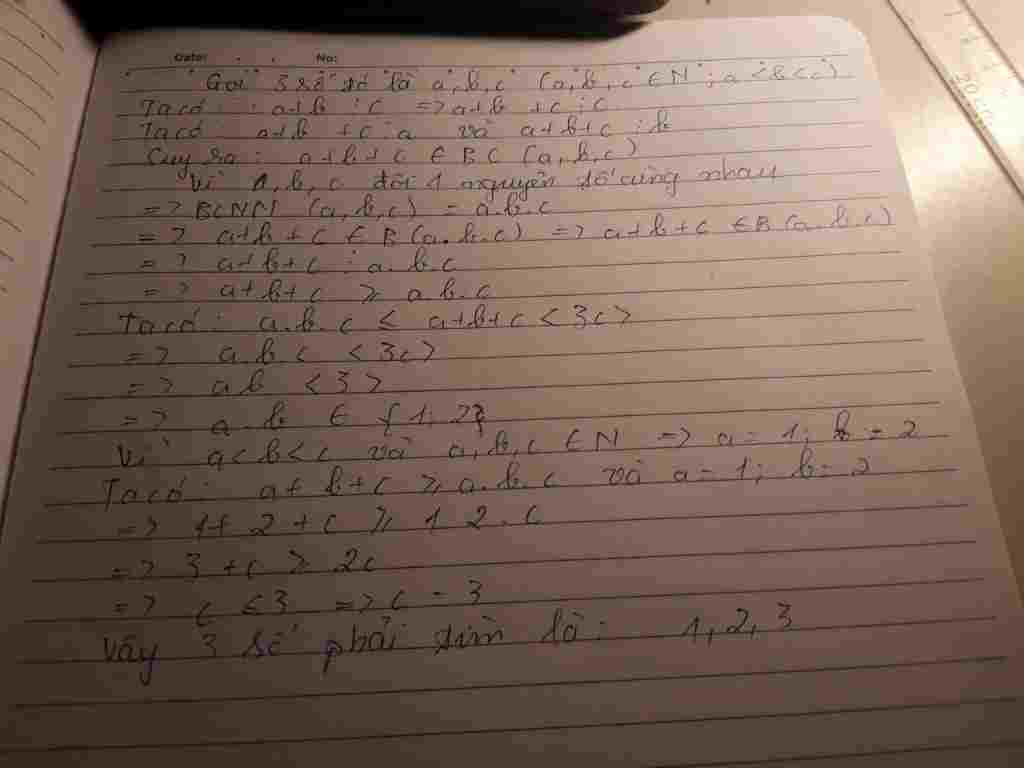 Date: No:
Gọi 3 số đó là a, b, c (a, b, c ∈ N; a < b < c)
Ta có: a+b ⋮ c => a+b +c ⋮ c
Ta có: a+b +c ⋮ a và a+b+c ⋮ b
Suy ra: a+b+c ∈ BC (a, b, c)
Vì a, b, c đôi 1 nguyên tố cùng nhau
=> BCNN (a, b, c) = a.b.c
=> a+b+c ∈ B (a.b.c) => a+b+c ∈ B (a.b.c)
=> a+b+c ⋮ a.b.c
=> a+b+c ≥ a.b.c
Ta có: a.b.c ≤ a+b+c < 3c>
=> a.b.c < 3c>
=> ab < 3>
=> a.b ∈ {1; 2}
Vì a<b<c và a, b, c ∈ N => a = 1; b = 2
Ta có: a+b+c ≥ a.b.c và a=1; b=2
=> 1+2+c ≥ 1.2.c
=> 3+c ≥ 2c
=> c ≤ 3 => c = 3
Vậy 3 số phải tìm là: 1, 2, 3